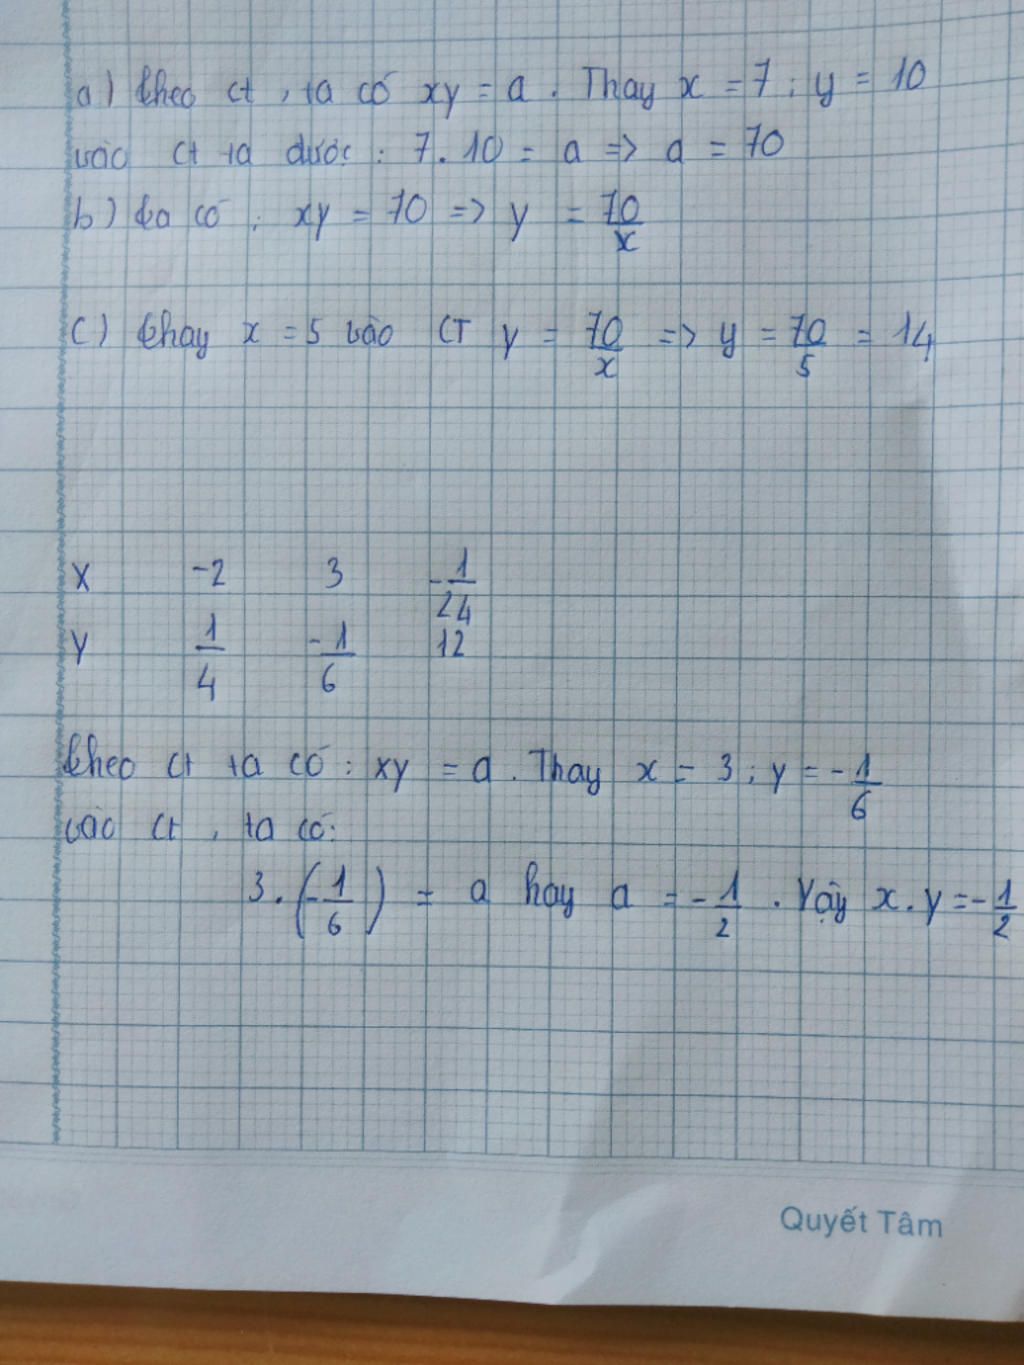 a) theo ct , ta có xy = a . Thay x = 7 ; y = 10
vào ct ta được : 7 . 10 = a => a = 70
b) ta có : xy = 70 => y = 70/x
c) thay x = 5 vào CT y = 70/x => y = 70/5 = 14
X -2 3 -1/24
Y 1/4 -1/6 12
theo ct ta có : xy = a . Thay x = 3 ; y = -1/6
vào ct , ta có:
3 . (-1/6) = a hay a = -1/2 . Vậy x . y = -1/2
Quyết Tâm